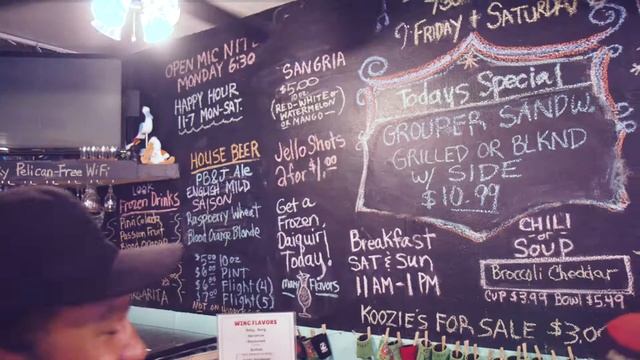 OPEN MIC NITE
MONDAY 6:30
HAPPY HOUR
11-7 MON-SAT.
Pelican-Free WiFi
LOOK
Frozen Drinks
Pina Colada
Passion Fruit
Blood Orange
HOUSE BEER
PB&J Ale
ENGLISH MILD
SAISON
Raspberry Wheat
Blood Orange Blonde
10oz
PINT
Flight (4)
Flight (5)
SANGRIA
$5.00
10oz
(RED-WHITE or
WATERMELON
or MANGO)
Jello Shots
2 for $1.00
Get a
Frozen
Daiquiri
Today!
Many Flavors
FRIDAY + SATURDAY
Todays Special
GROUPER SANDW.
GRILLED OR BLKND
W/ SIDE
$10.99
Breakfast
SAT & Sun
11AM-1PM
CHILI
or
SOUP
Broccoli Cheddar
CUP $3.99 Bowl $5.49
KOOZIE'S FOR SALE $3.0
WING FLAVORS